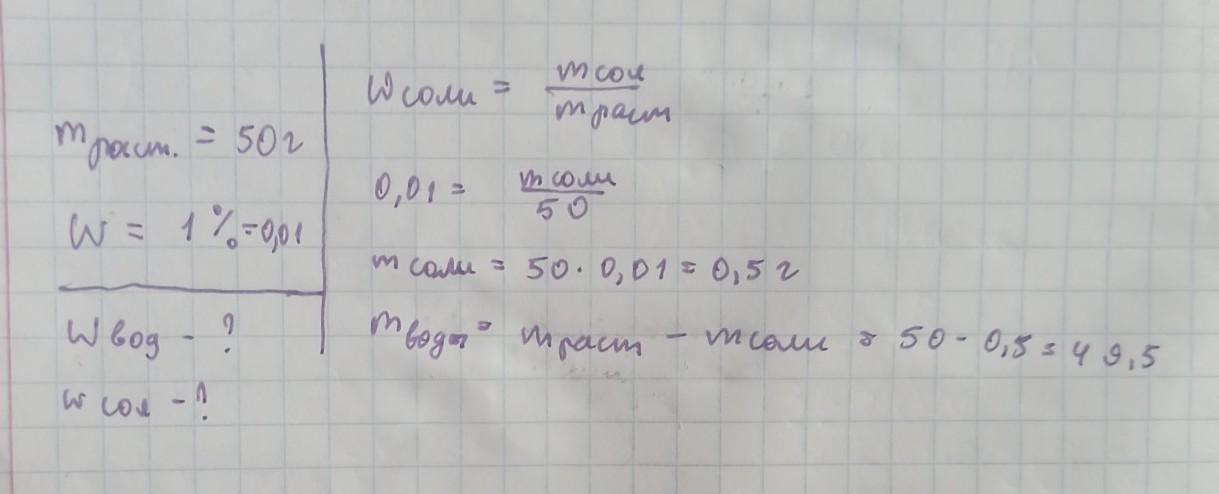 m раст. = 50 г
W = 1 % = 0,01
W вод - ?
w сол - ?
W соли = m сол / m раст
0,01 = m соли / 50
m соли = 50 · 0,01 = 0,5 г
m воды = m раст - m соли = 50 - 0,5 = 49,5